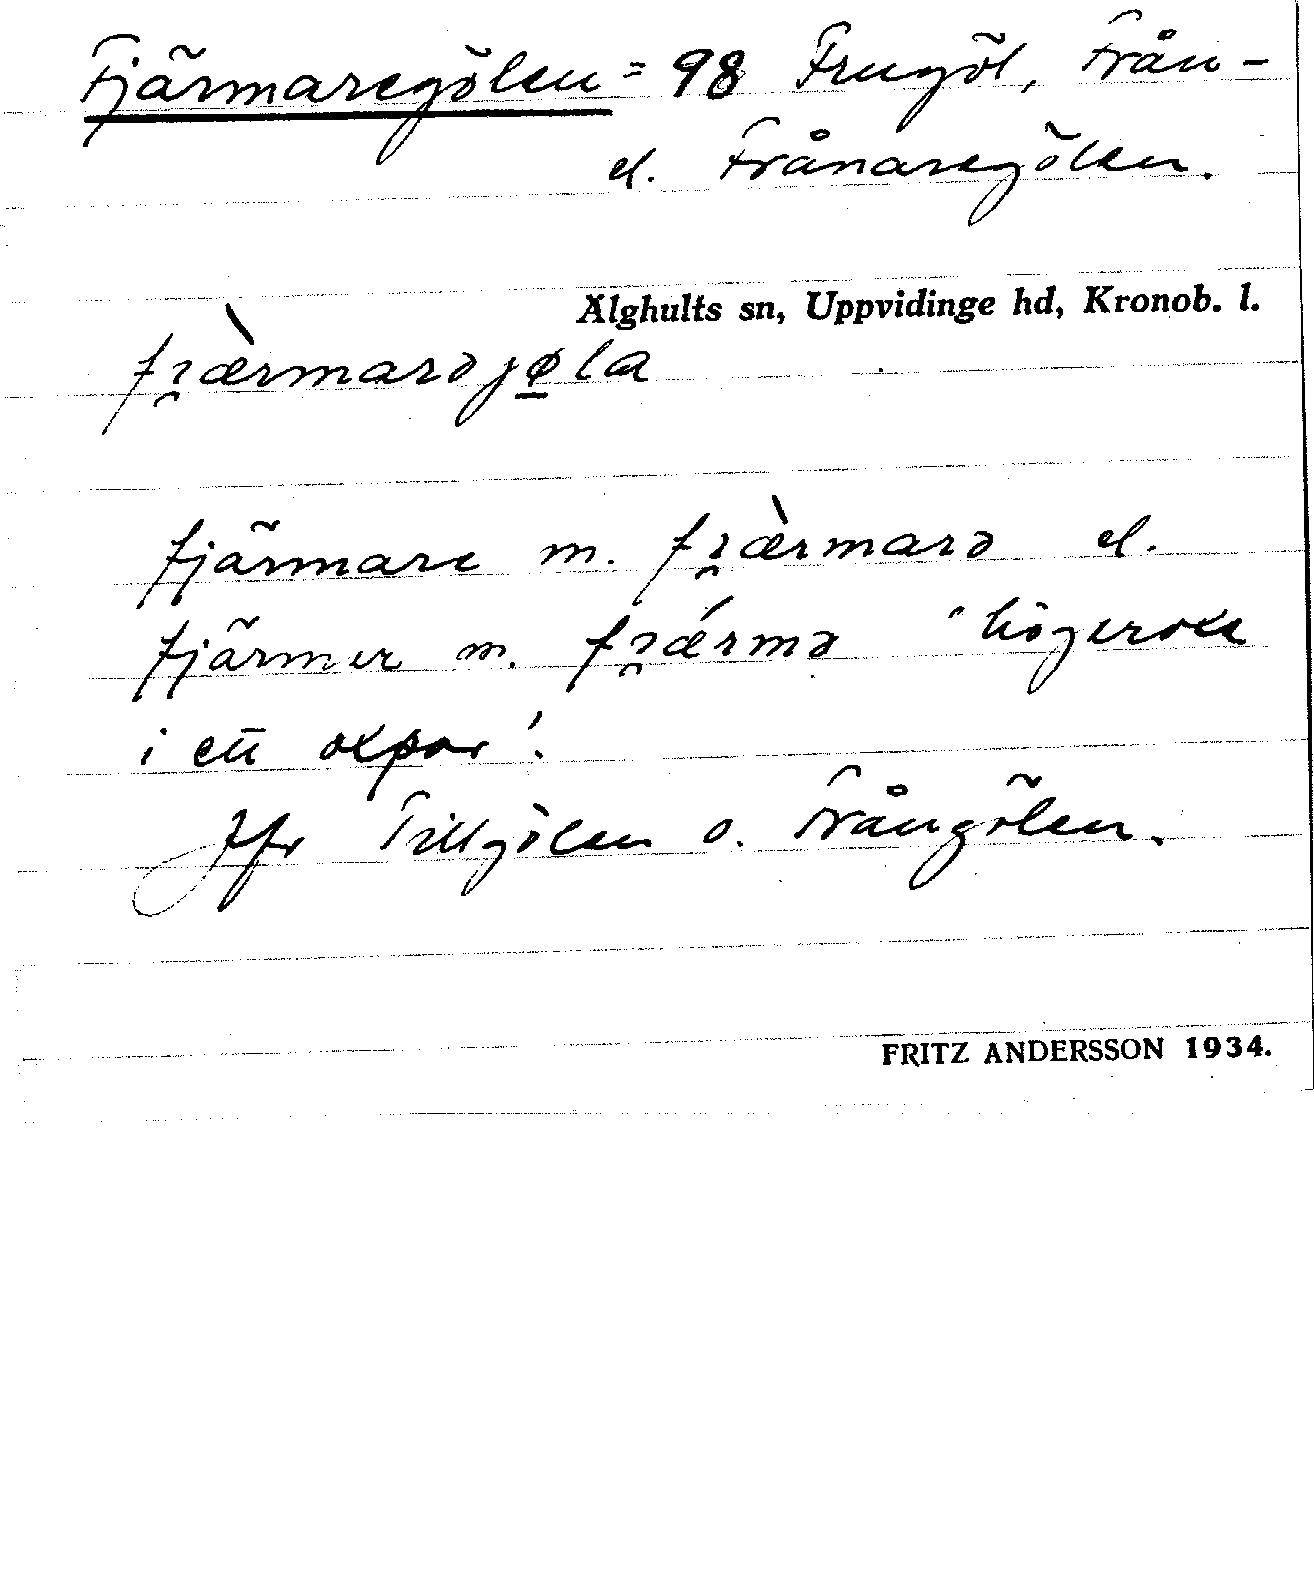 Fjärmaregölen = 98 Frugöl, Från-
el. Frånaregölen.
Älghults sn, Uppvidinge hd, Kronob. l.
fɿ̯æ̀rmarəjø̲la
fjärmare m. fɿ̯æ̀rmarə el.
fjärmer m. fɿ̯ǽrmə 'högeroxe
i ett oxpar'.
Jfr Tillgölen o. Frångölen.
FRITZ ANDERSSON 1934.